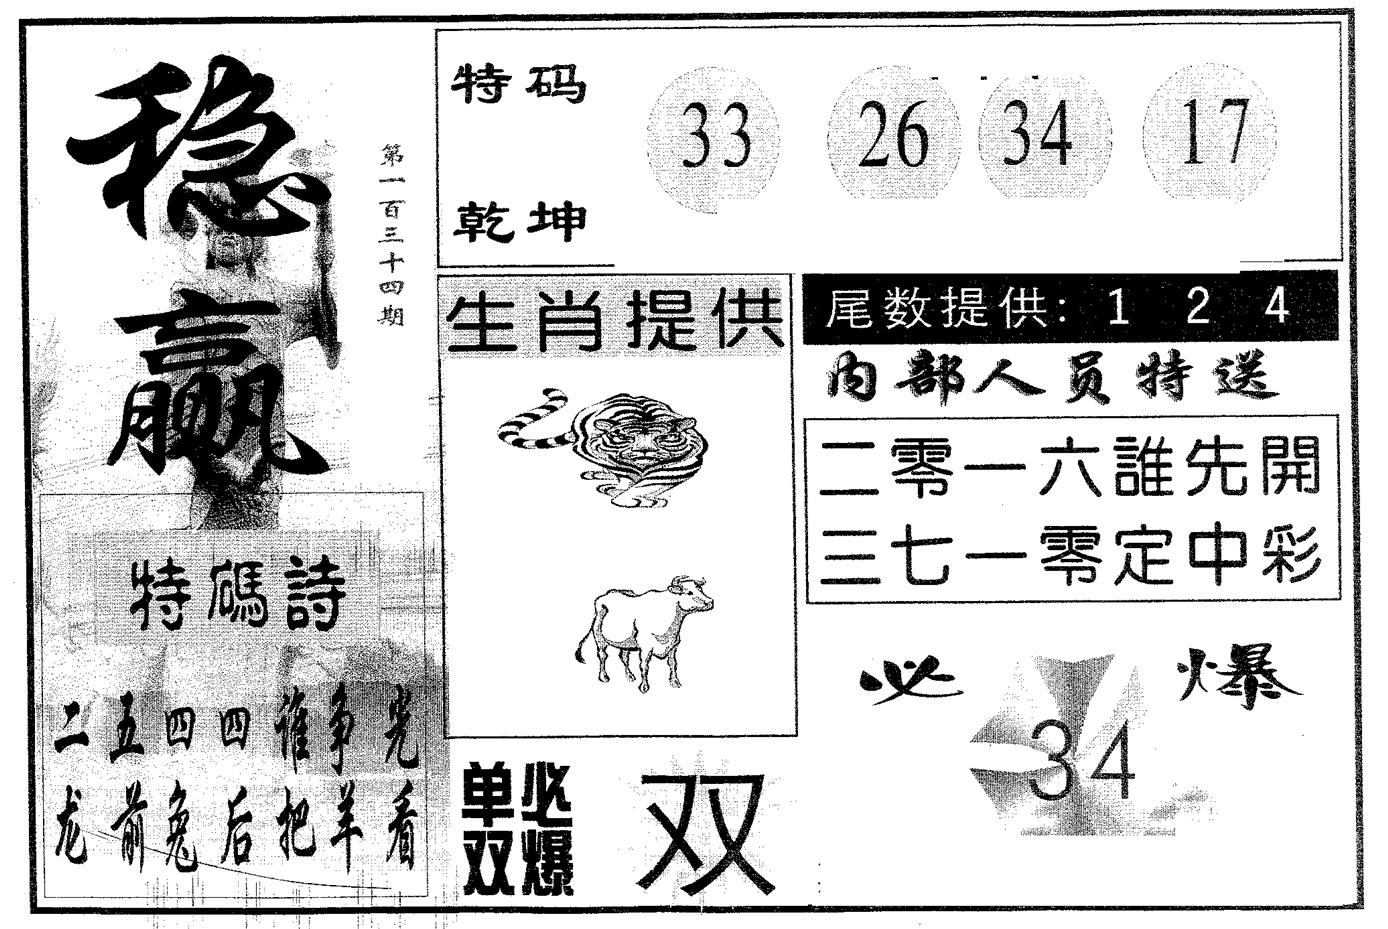 稳赢
第一百三十四期
特码
乾坤
33 26 34 17
生肖提供
尾数提供：1 2 4
内部人员特送
二零一六誰先開
三七一零定中彩
特碼詩
二五四四谁争光
龙前兔后把羊看
单双
必爆
双
必爆
34